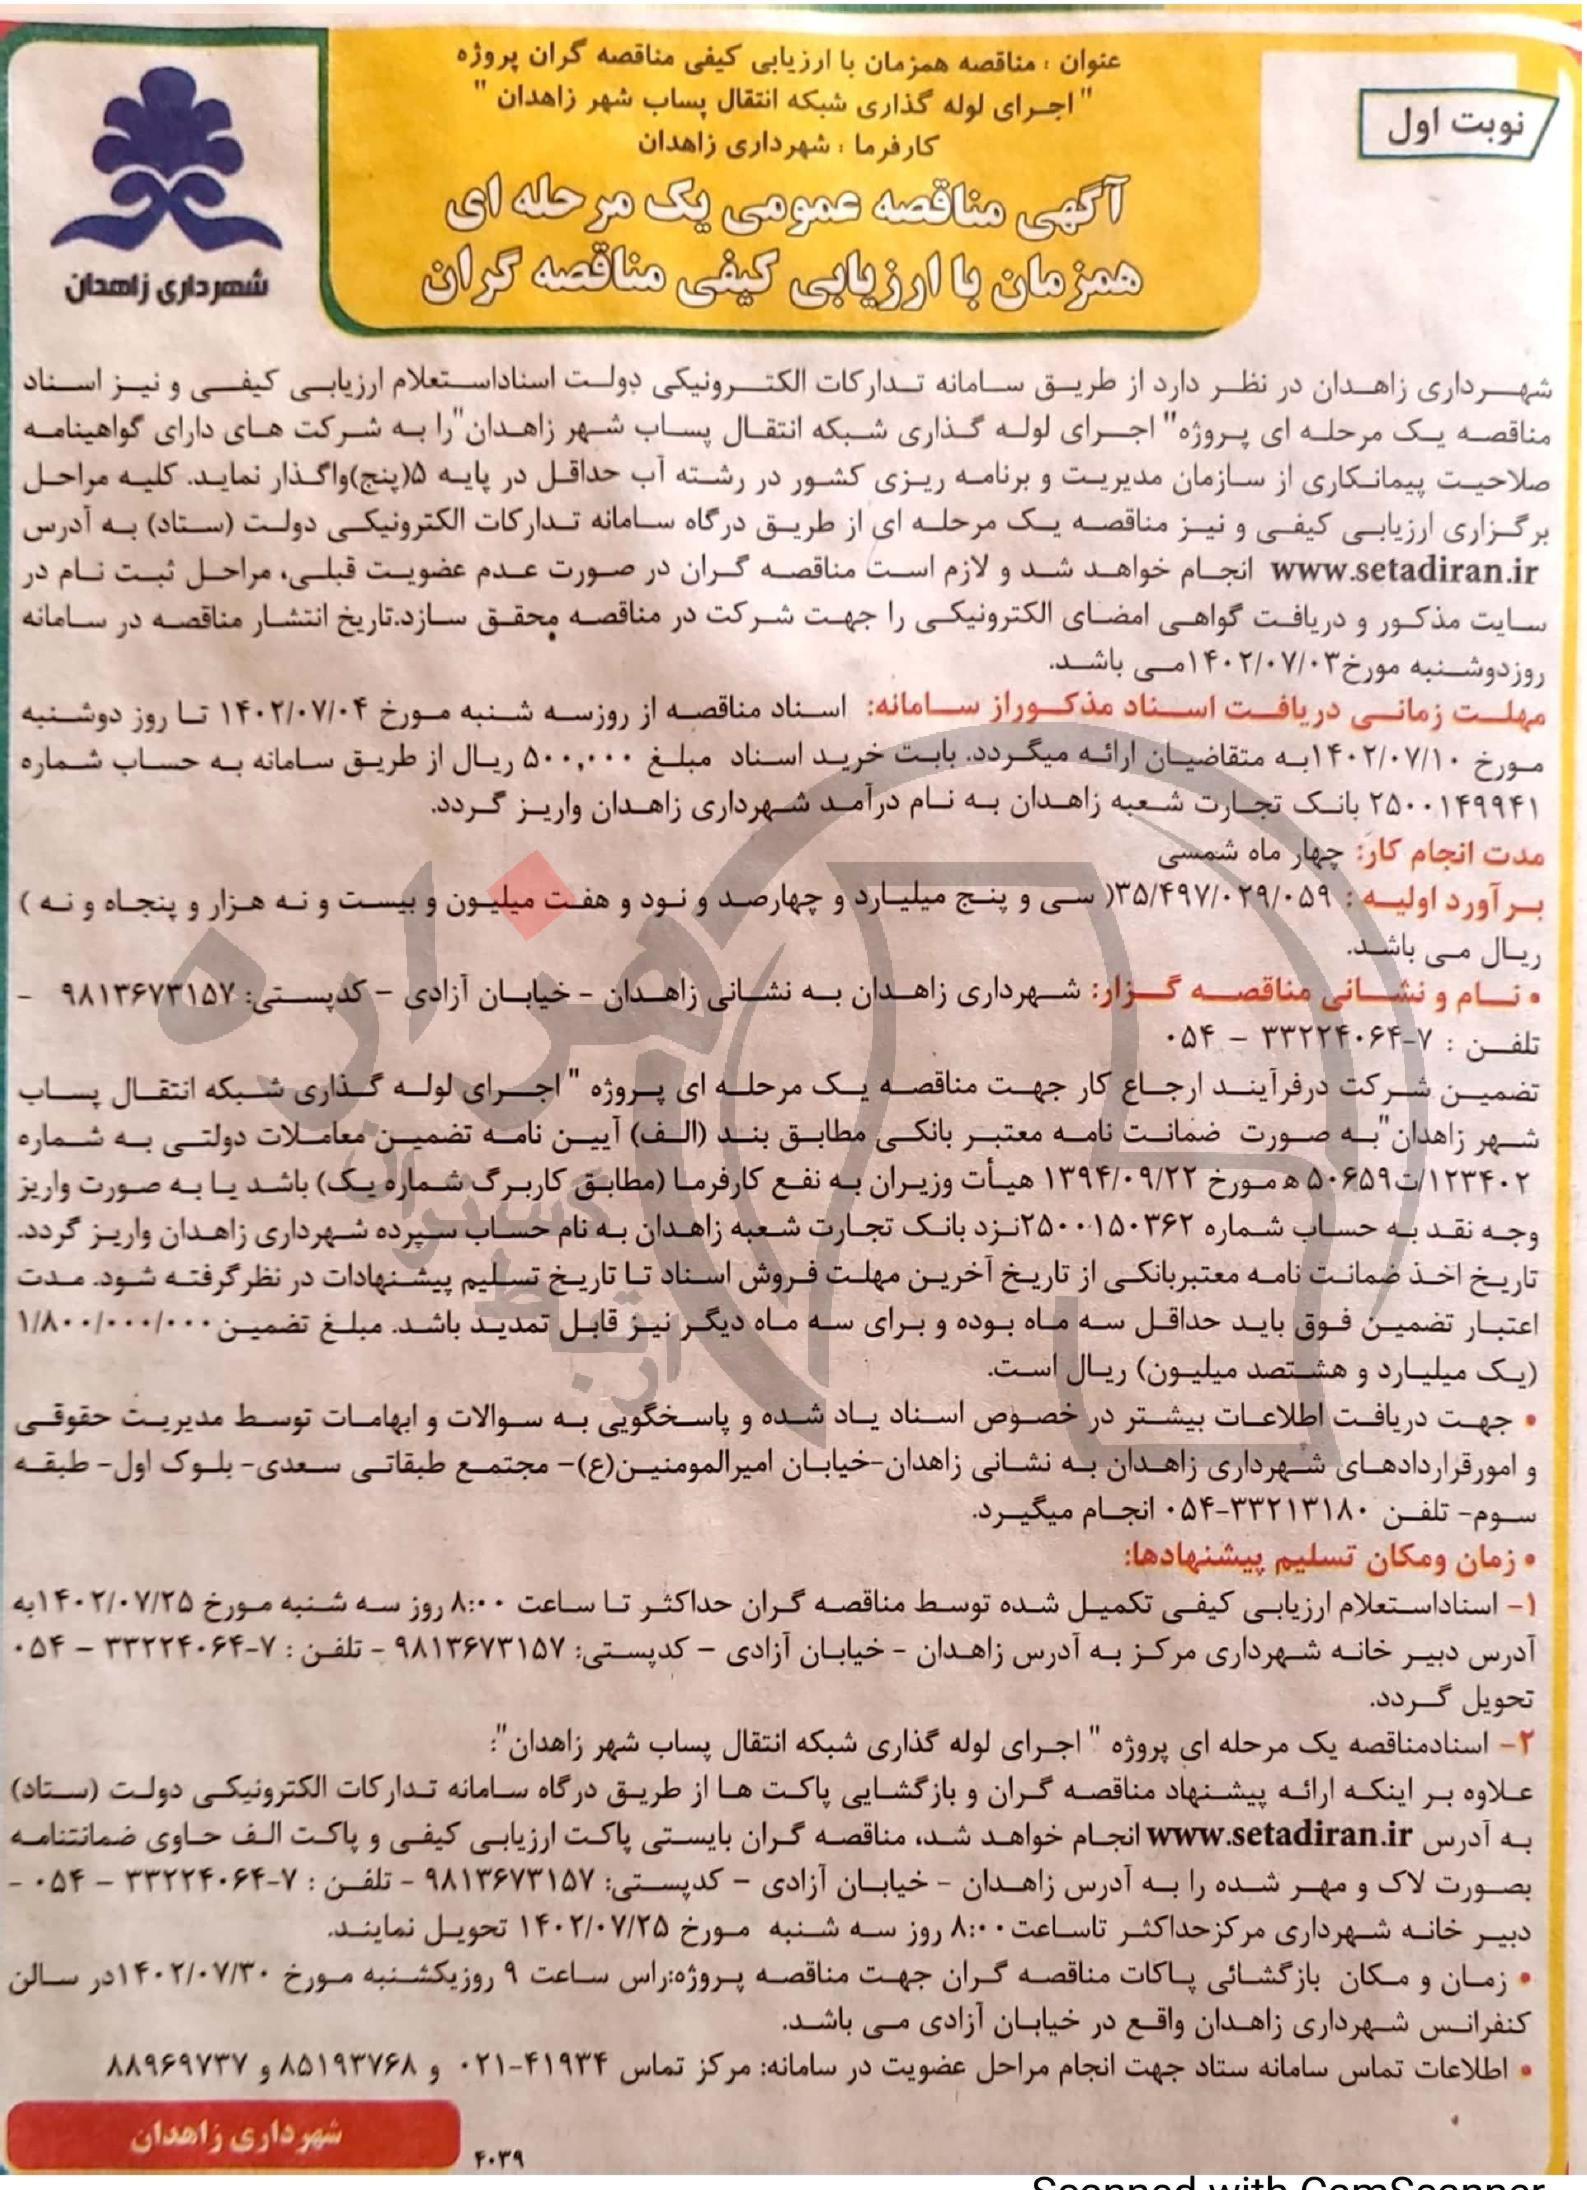 نوبت اول
عنوان : مناقصه همزمان با ارزیابی کیفی مناقصه گران پروژه
" اجرای لوله گذاری شبکه انتقال پساب شهر زاهدان "
کارفرما : شهرداری زاهدان
آگهی مناقصه عمومی یک مرحله ای
همزمان با ارزیابی کیفی مناقصه گران
شهرداری زاهدان
شهرداری زاهدان در نظر دارد از طریق سامانه تدارکات الکترونیکی دولت اسناداستعلام ارزیابی کیفی و نیز اسناد
مناقصه یک مرحله ای پروژه" اجرای لوله گذاری شبکه انتقال پساب شهر زاهدان"را به شرکت های دارای گواهینامه
صلاحیت پیمانکاری از سازمان مدیریت و برنامه ریزی کشور در رشته آب حداقل در پایه ۵(پنج)واگذار نماید. کلیه مراحل
برگزاری ارزیابی کیفی و نیز مناقصه یک مرحله ای از طریق درگاه سامانه تدارکات الکترونیکی دولت (ستاد) به آدرس
www.setadiran.ir انجام خواهد شد و لازم است مناقصه گران در صورت عدم عضویت قبلی، مراحل ثبت نام در
سایت مذکور و دریافت گواهی امضای الکترونیکی را جهت شرکت در مناقصه محقق سازد.تاریخ انتشار مناقصه در سامانه
روزدوشنبه مورخ۱۴۰۲/۰۷/۰۳می باشد.
مهلت زمانی دریافت اسناد مذکوراز سامانه: اسناد مناقصه از روزسه شنبه مورخ ۱۴۰۲/۰۷/۰۴ تا روز دوشنبه
مورخ ۱۴۰۲/۰۷/۱۰به متقاضیان ارائه میگردد. بابت خرید اسناد مبلغ ۵۰۰,۰۰۰ ریال از طریق سامانه به حساب شماره
۲۵۰۰۱۴۹۹۴۱ بانک تجارت شعبه زاهدان به نام درآمد شهرداری زاهدان واریز گردد.
مدت انجام کار: چهار ماه شمسی
برآورد اولیه : ۳۵/۴۹۷/۰۲۹/۰۵۹( سی و پنج میلیارد و چهارصد و نود و هفت میلیون و بیست و نه هزار و پنجاه و نه )
ریال می باشد.
• نام و نشانی مناقصه گزار: شهرداری زاهدان به نشانی زاهدان - خیابان آزادی – کدپستی: ۹۸۱۳۶۷۳۱۵۷ -
تلفن : ۷-۳۳۲۲۴۰۶۴ – ۰۵۴
تضمین شرکت درفرآیند ارجاع کار جهت مناقصه یک مرحله ای پروژه " اجرای لوله گذاری شبکه انتقال پساب
شهر زاهدان"به صورت ضمانت نامه معتبر بانکی مطابق بند (الف) آیین نامه تضمین معاملات دولتی به شماره
۱۲۳۴۰۲/ت۵۰۶۵۹ ه مورخ ۱۳۹۴/۰۹/۲۲ هیأت وزیران به نفع کارفرما (مطابق کاربرگ شماره یک) باشد یا به صورت واریز
وجه نقد به حساب شماره ۲۵۰۰۱۵۰۳۶۲نزد بانک تجارت شعبه زاهدان به نام حساب سپرده شهرداری زاهدان واریز گردد.
تاریخ اخذ ضمانت نامه معتبربانکی از تاریخ آخرین مهلت فروش اسناد تا تاریخ تسلیم پیشنهادات در نظرگرفته شود. مدت
اعتبار تضمین فوق باید حداقل سه ماه بوده و برای سه ماه دیگر نیز قابل تمدید باشد. مبلغ تضمین۱/۸۰۰/۰۰۰/۰۰۰
(یک میلیارد و هشتصد میلیون) ریال است.
• جهت دریافت اطلاعات بیشتر در خصوص اسناد یاد شده و پاسخگویی به سوالات و ابهامات توسط مدیریت حقوقی
و امورقراردادهای شهرداری زاهدان به نشانی زاهدان-خیابان امیرالمومنین(ع)- مجتمع طبقاتی سعدی- بلوک اول- طبقه
سوم- تلفن ۳۳۲۱۳۱۸۰-۰۵۴ انجام میگیرد.
• زمان ومکان تسلیم پیشنهادها:
۱- اسناداستعلام ارزیابی کیفی تکمیل شده توسط مناقصه گران حداکثر تا ساعت ۸:۰۰ روز سه شنبه مورخ ۱۴۰۲/۰۷/۲۵به
آدرس دبیر خانه شهرداری مرکز به آدرس زاهدان - خیابان آزادی – کدپستی: ۹۸۱۳۶۷۳۱۵۷ - تلفن : ۷-۳۳۲۲۴۰۶۴ – ۰۵۴
تحویل گردد.
۲- اسنادمناقصه یک مرحله ای پروژه " اجرای لوله گذاری شبکه انتقال پساب شهر زاهدان":
علاوه بر اینکه ارائه پیشنهاد مناقصه گران و بازگشایی پاکت ها از طریق درگاه سامانه تدارکات الکترونیکی دولت (ستاد)
به آدرس www.setadiran.ir انجام خواهد شد، مناقصه گران بایستی پاکت ارزیابی کیفی و پاکت الف حاوی ضمانتنامه
بصورت لاک و مهر شده را به آدرس زاهدان - خیابان آزادی – کدپستی: ۹۸۱۳۶۷۳۱۵۷ - تلفن : ۷-۳۳۲۲۴۰۶۴ – ۰۵۴ -
دبیر خانه شهرداری مرکزحداکثر تاساعت۸:۰۰ روز سه شنبه مورخ ۱۴۰۲/۰۷/۲۵ تحویل نمایند.
• زمان و مکان بازگشائی پاکات مناقصه گران جهت مناقصه پروژه:راس ساعت ۹ روزیکشنبه مورخ ۱۴۰۲/۰۷/۳۰در سالن
کنفرانس شهرداری زاهدان واقع در خیابان آزادی می باشد.
• اطلاعات تماس سامانه ستاد جهت انجام مراحل عضویت در سامانه: مرکز تماس ۴۱۹۳۴-۰۲۱ و ۸۵۱۹۳۷۶۸ و ۸۸۹۶۹۷۳۷
شهرداری زاهدان
۴۰۳۹
Scanned with CamScanner
هزاره